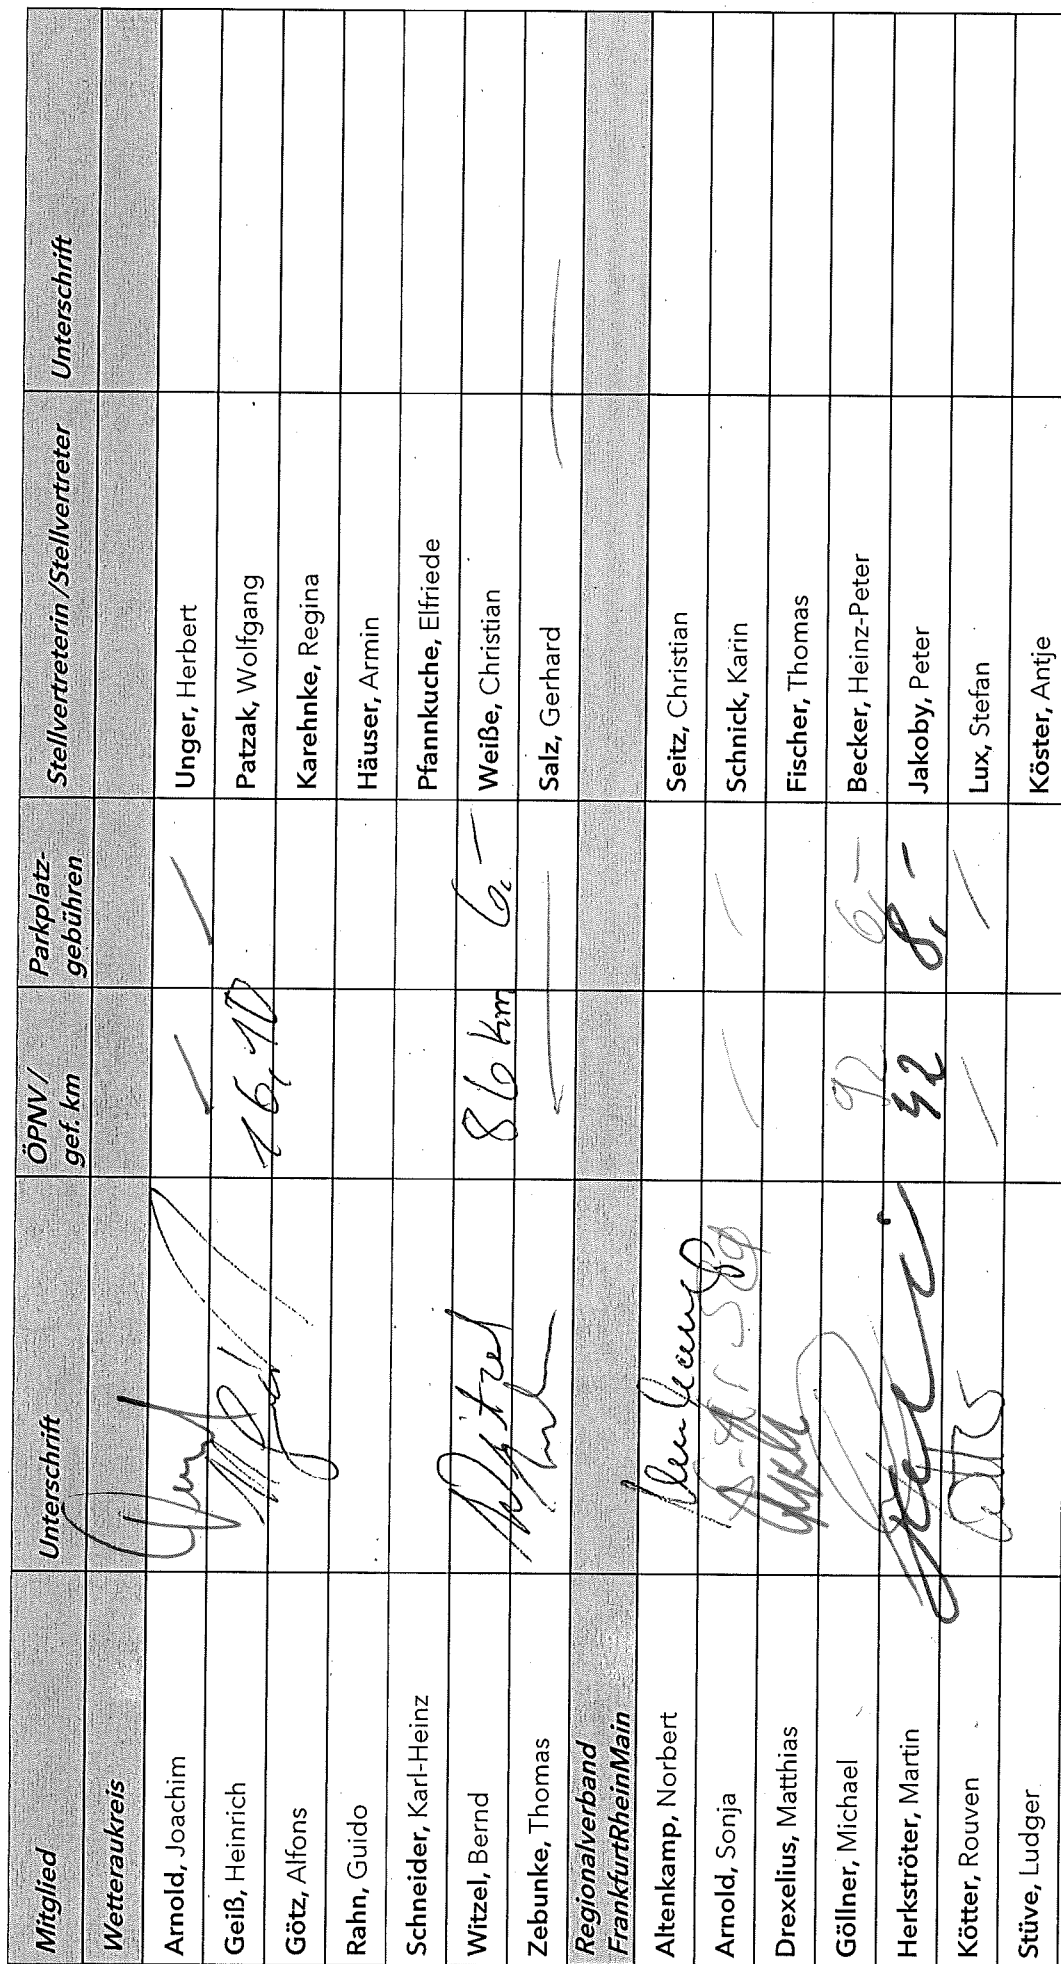 Mitglied Unterschrift ÖPNV / gef. km Parkplatz-gebühren Stellvertreterin/Stellvertreter Unterschrift
Wetteraukreis
Arnold, Joachim — — Unger, Herbert
Geiß, Heinrich 16,10 Patzak, Wolfgang
Götz, Alfons Karehnke, Regina
Rahn, Guido Häuser, Armin
Schneider, Karl-Heinz Pfannkuche, Elfriede
Witzel, Bernd Witzel 86 km 6,- Weiße, Christian
Zebunke, Thomas Salz, Gerhard
Regionalverband
FrankfurtRheinMain
Altenkamp, Norbert Seitz, Christian
Arnold, Sonja — — Schnick, Karin
Drexelius, Matthias Fischer, Thomas
Göllner, Michael 92 6,- Becker, Heinz-Peter
Herkströter, Martin 42 8,- Jakoby, Peter
Kötter, Rouven — — Lux, Stefan
Stüve, Ludger Köster, Antje